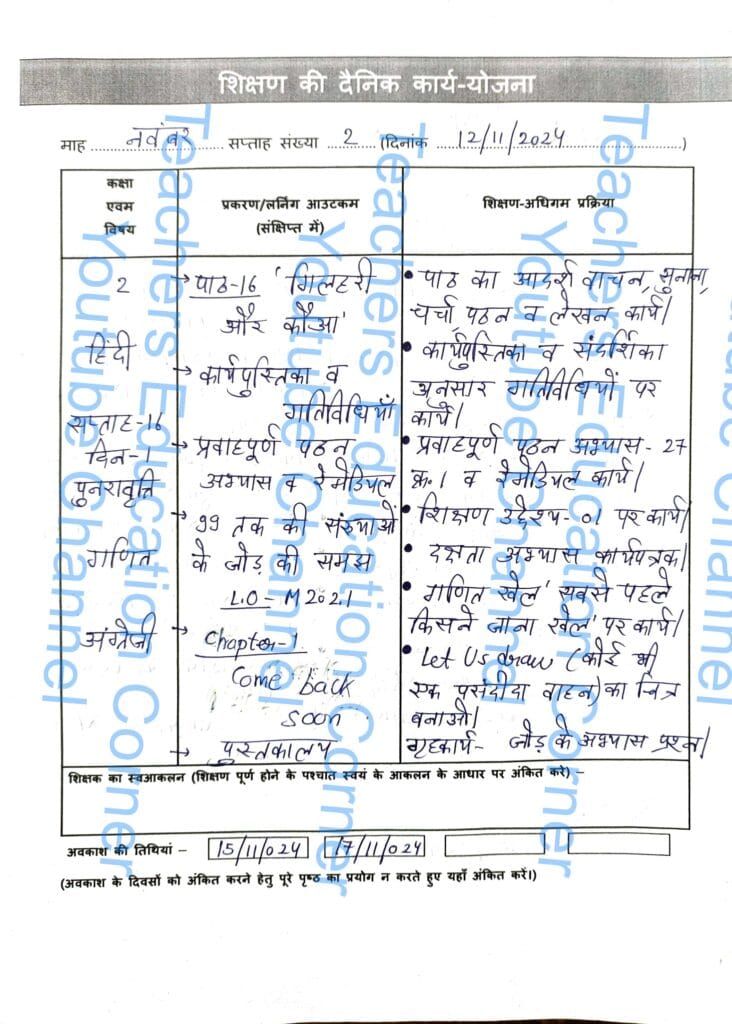 शिक्षण की दैनिक कार्य-योजना
माह नवंबर सप्ताह संख्या 2 (दिनांक 12/11/2024)
कक्षा
एवम
विषय
प्रकरण/लर्निंग आउटकम
(संक्षिप्त में)
शिक्षण-अधिगम प्रक्रिया
2
हिंदी
सप्ताह-16
दिन-1
पुनरावृत्ति
गणित
अंग्रेजी
→ पाठ-16 'गिलहरी
और कौआ'
→ कार्यपुस्तिका व
गतिविधियाँ
→ प्रवाहपूर्ण पठन
अभ्यास व रेमेडियल
→ 99 तक की संख्याओं
के जोड़ की समझ
L.O - M202.1
→ Chapter-1
Come back
soon
→ पुस्तकालय
• पाठ का आदर्श वाचन, सुनाना,
चर्चा, पठन व लेखन कार्य।
• कार्यपुस्तिका व संदर्शिका
अनुसार गतिविधियों पर
कार्य।
• प्रवाहपूर्ण पठन अभ्यास- 27
क्र.1 व रेमेडियल कार्य।
• शिक्षण उद्देश्य-01 पर कार्य।
• दक्षता अभ्यास कार्यपत्रक।
• गणित खेल 'सबसे पहले
किसने जाना खेल' पर कार्य।
• Let Us draw (कोई भी
एक पसंदीदा वाहन) का चित्र
बनाओ।
गृहकार्य- जोड़ के अभ्यास प्रश्न।
शिक्षक का स्वआकलन (शिक्षण पूर्ण होने के पश्चात स्वयं के आकलन के आधार पर अंकित करें) –
अवकाश की तिथियां – 15/11/024 17/11/024
(अवकाश के दिवसों को अंकित करने हेतु पूरे पृष्ठ का प्रयोग न करते हुए यहाँ अंकित करें।)
Teachers Education Corner
Youtube Channel
Teachers Education Corner
Youtube Channel
Teachers Education Corner
Youtube Channel